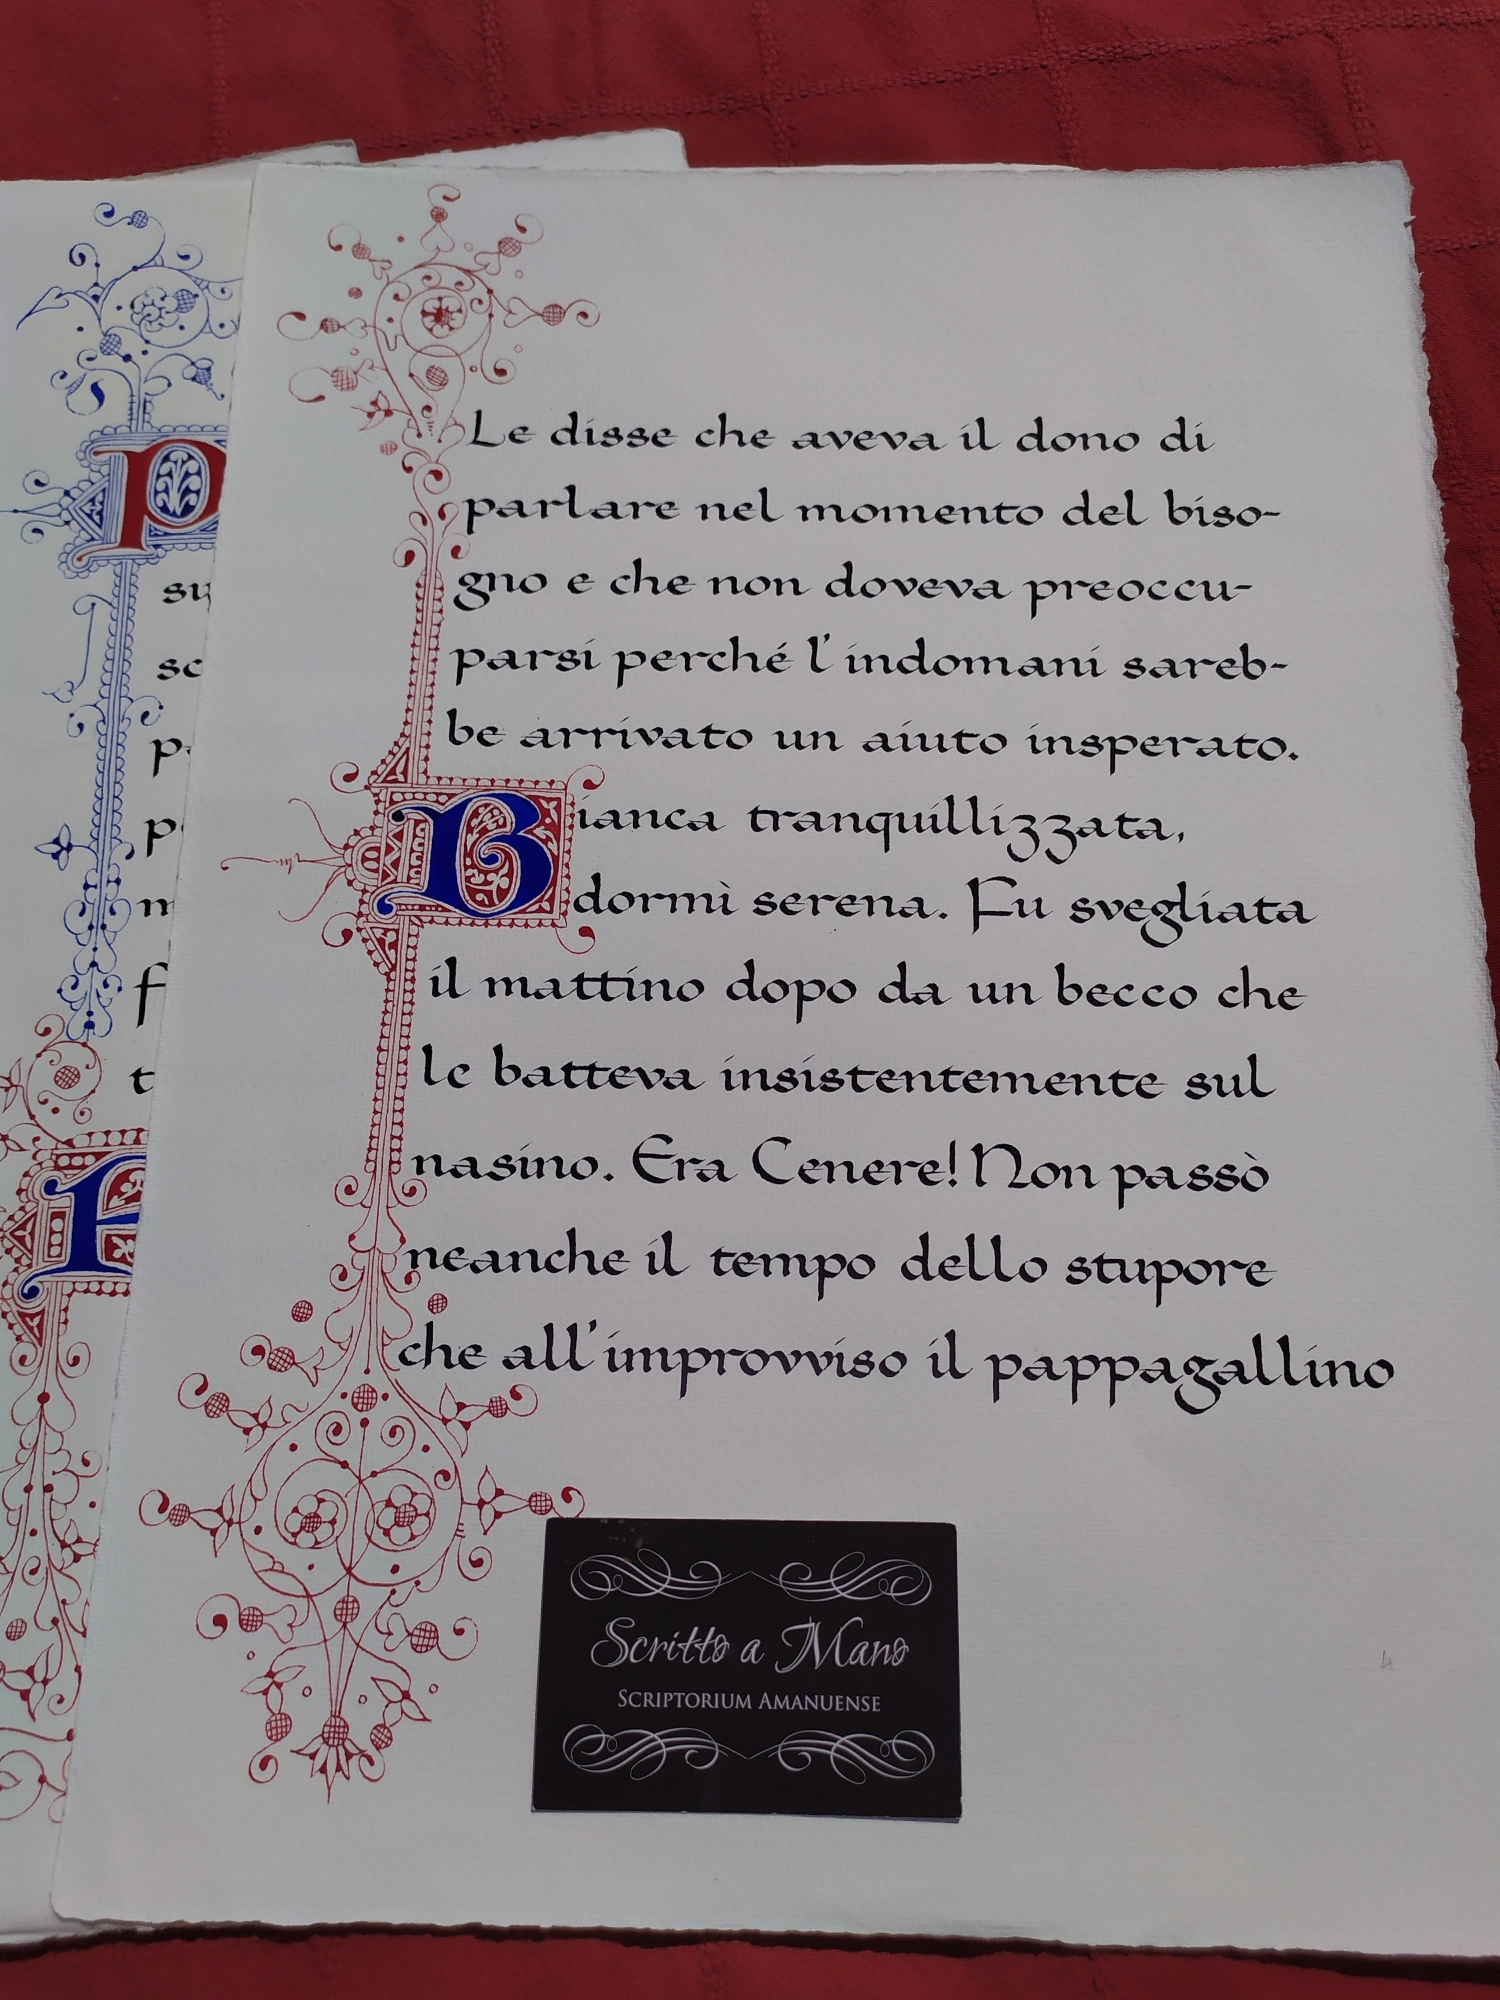 Le disse che aveva il dono di
parlare nel momento del biso-
gno e che non doveva preoccu-
parsi perché l'indomani sareb-
be arrivato un aiuto insperato.
Bianca tranquillizzata,
dormì serena. Fu svegliata
il mattino dopo da un becco che
le batteva insistentemente sul
nasino. Era Cenere! Non passò
neanche il tempo dello stupore
che all'improvviso il pappagallino
Scritto a Mano
SCRIPTORIUM AMANUENSE